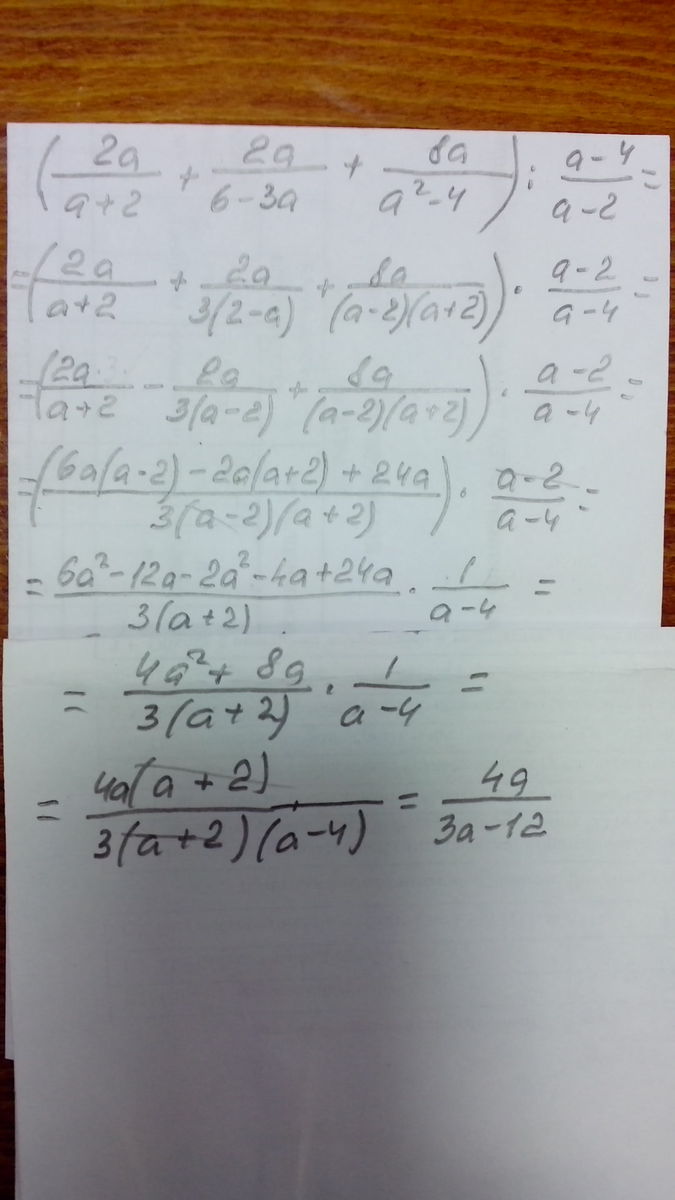 (2a/(a+2) + 2a/(6-3a) + 8a/(a²-4)) : (a-4)/(a-2) =
= (2a/(a+2) + 2a/(3(2-a)) + 8a/((a-2)(a+2))) · (a-2)/(a-4) =
= (2a/(a+2) - 2a/(3(a-2)) + 8a/((a-2)(a+2))) · (a-2)/(a-4) =
= ((6a(a-2) - 2a(a+2) + 24a)/(3(a-2)(a+2))) · (a-2)/(a-4) =
= (6a²-12a-2a²-4a+24a)/(3(a+2)) · 1/(a-4) =
= (4a²+8a)/(3(a+2)) · 1/(a-4) =
= 4a(a+2)/(3(a+2)(a-4)) = 4a/(3a-12)